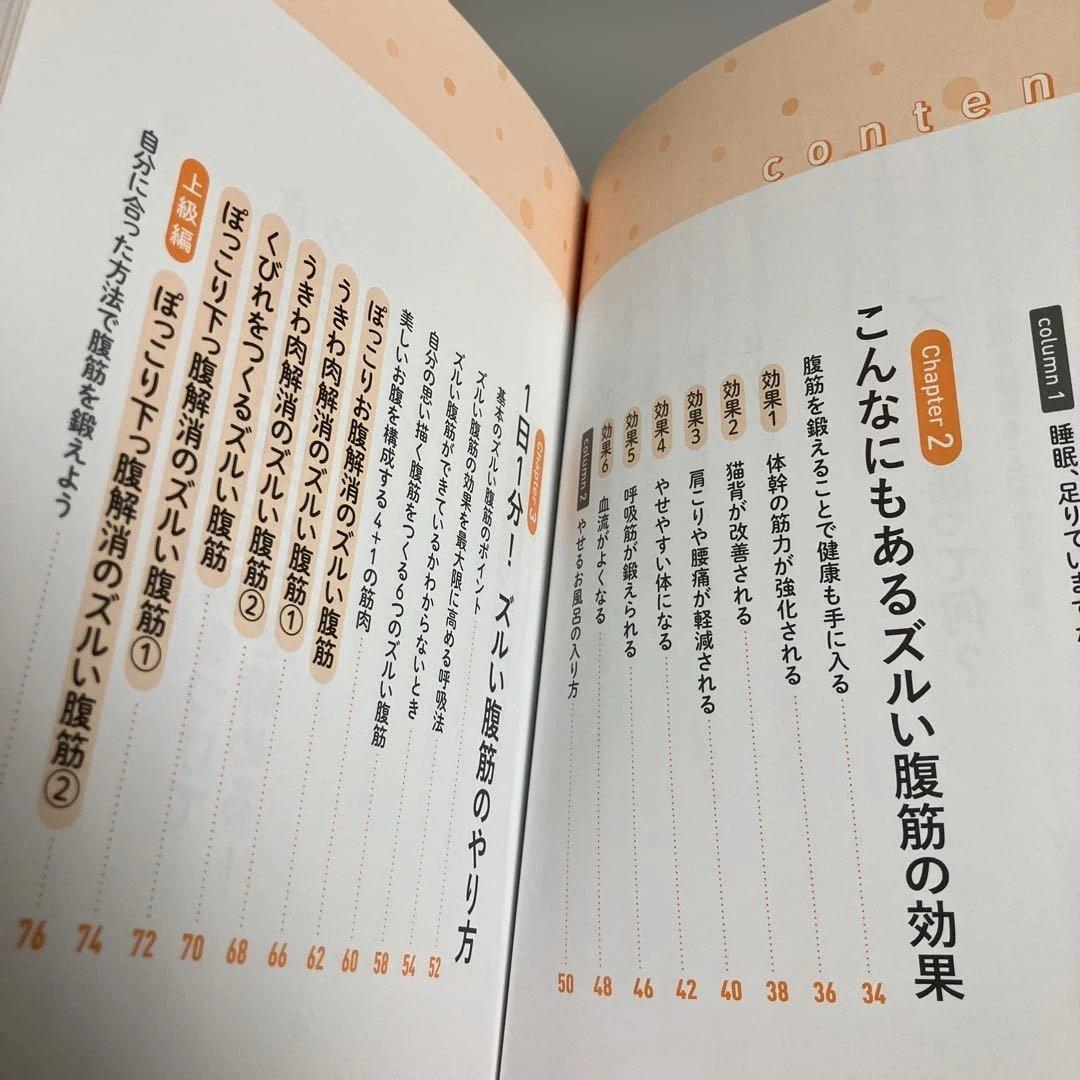 conten
column 1
睡眠、足りていますか
Chapter 2
こんなにもあるズルい腹筋の効果
腹筋を鍛えることで健康も手に入る 34
効果1 体幹の筋力が強化される 36
効果2 猫背が改善される 38
効果3 肩こりや腰痛が軽減される 40
効果4 やせやすい体になる 42
効果5 呼吸筋が鍛えられる 46
効果6 血流がよくなる 48
column 2 やせるお風呂の入り方 50
Chapter 3
1日1分! ズルい腹筋のやり方
基本のズルい腹筋のポイント 52
ズルい腹筋の効果を最大限に高める呼吸法 54
ズルい腹筋ができているかわからないとき 58
自分の思い描く腹筋をつくる6つのズルい腹筋 60
美しいお腹を構成する4+1の筋肉 62
ぽっこりお腹解消のズルい腹筋 66
うきわ肉解消のズルい腹筋① 68
うきわ肉解消のズルい腹筋② 70
くびれをつくるズルい腹筋 72
ぽっこり下っ腹解消のズルい腹筋① 74
上級編
ぽっこり下っ腹解消のズルい腹筋② 76
自分に合った方法で腹筋を鍛えよう